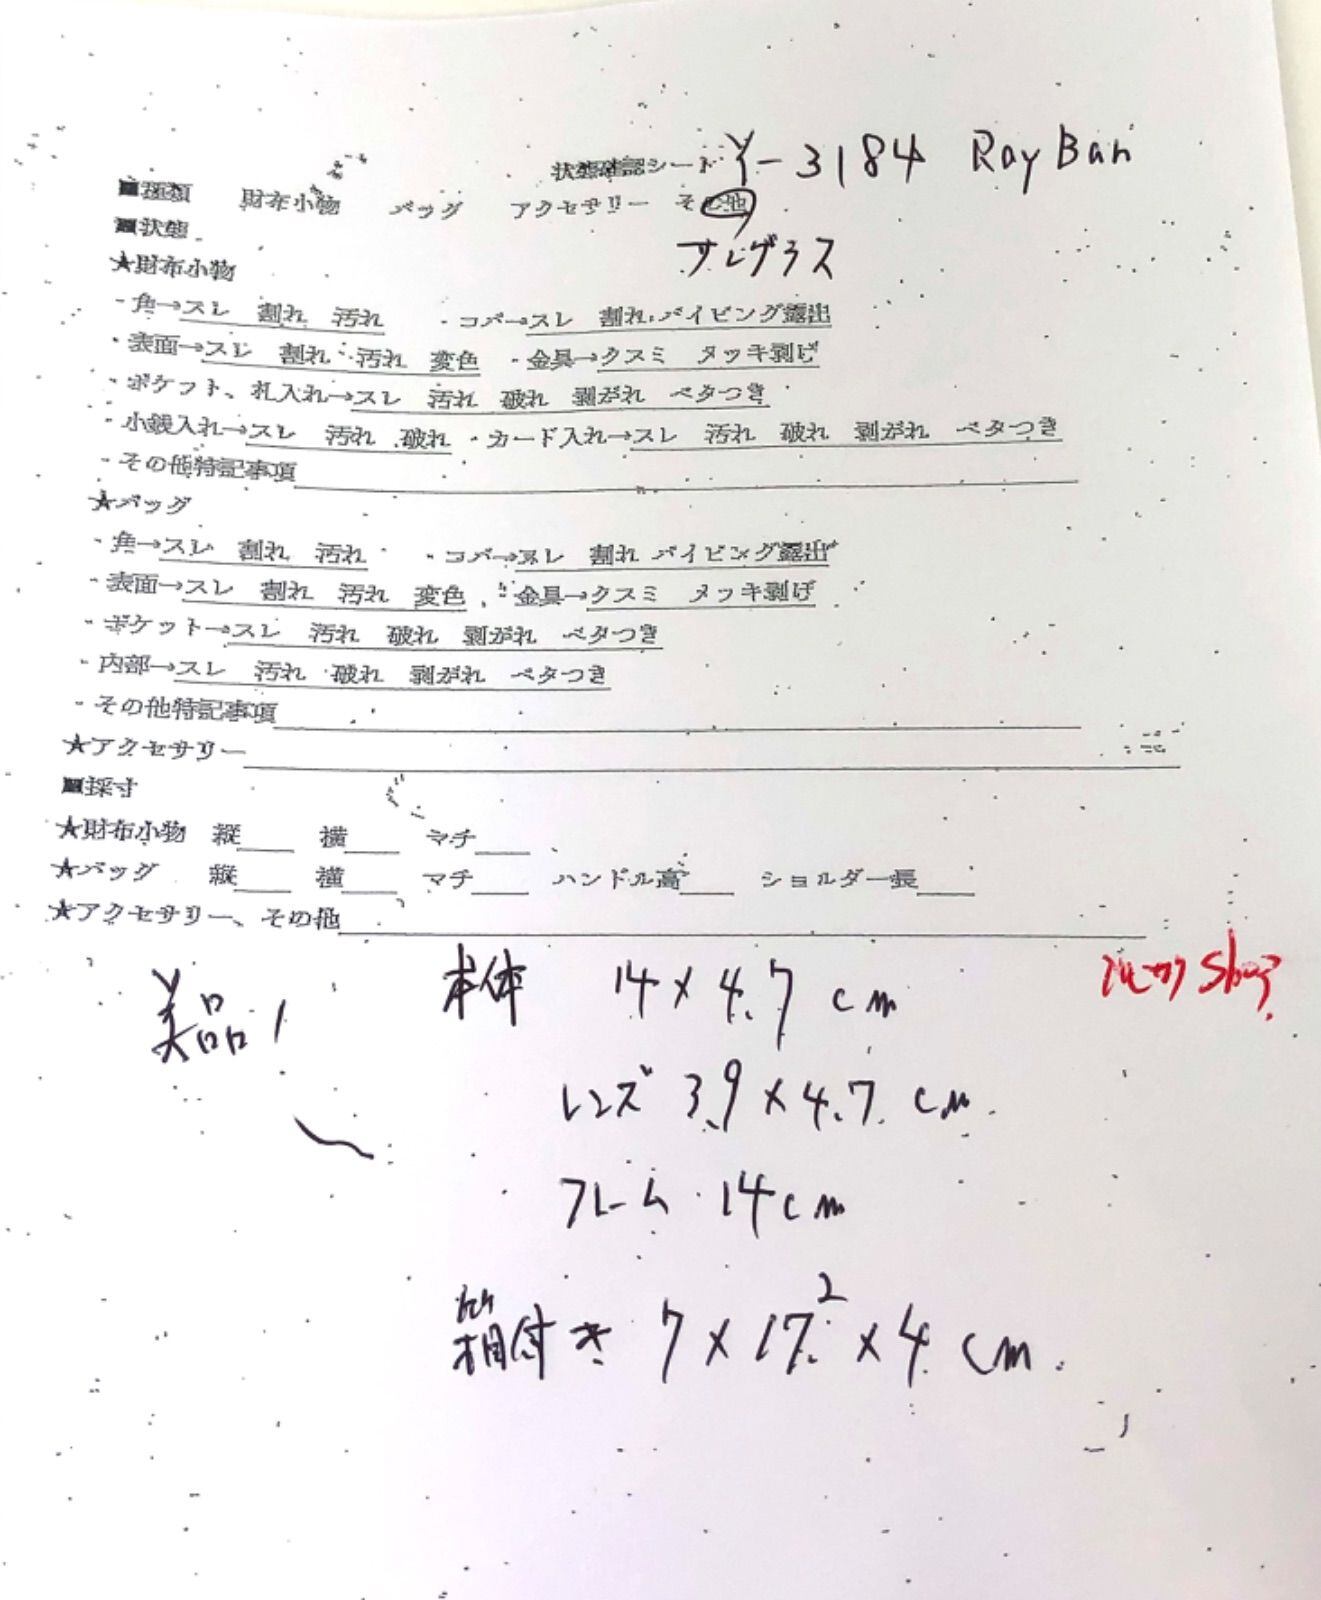 状態確認シート Y-3184 RayBan
■種類 財布小物 バッグ アクセサリー その他
■状態 サングラス
★財布小物
・角→スレ 割れ 汚れ ・コバ→スレ 割れ パイピング露出
・表面→スレ 割れ 汚れ 変色 ・金具→クスミ メッキ剥げ
・ポケット、札入れ→スレ 汚れ 破れ 剥がれ ベタつき
・小銭入れ→スレ 汚れ 破れ ・カード入れ→スレ 汚れ 破れ 剥がれ ベタつき
・その他特記事項
★バッグ
・角→スレ 割れ 汚れ ・コバ→スレ 割れ パイピング露出
・表面→スレ 割れ 汚れ 変色 ・金具→クスミ メッキ剥げ
・ポケット→スレ 汚れ 破れ 剥がれ ベタつき
・内部→スレ 汚れ 破れ 剥がれ ベタつき
・その他特記事項
★アクセサリー
■採寸
★財布小物 縦 横 マチ
★バッグ 縦 横 マチ ハンドル高 ショルダー長
★アクセサリー、その他
美品! 本体 14×4.7cm
レンズ 3.9×4.7cm
フレーム 14cm
箱付き 7×17.2×4cm